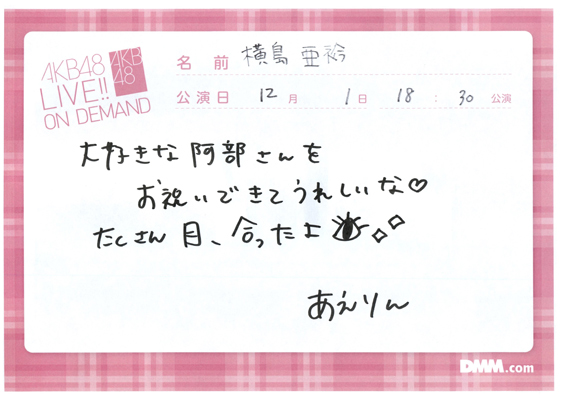 AKB48
LIVE!!
ON DEMAND
AKB
48
名前 横島亜衿
公演日 12月 1日 18:30公演
大好きな阿部さんを
お祝いできてうれしいな♡
たくさん目、合ったよ👁✧✧
あえりん
DMM.com